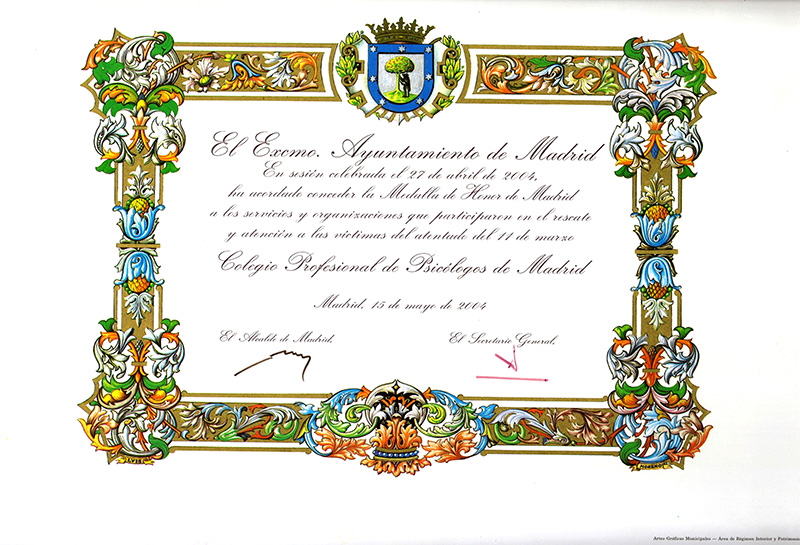 El Excmo. Ayuntamiento de Madrid
En sesión celebrada el 27 de abril de 2004,
ha acordado conceder la Medalla de Honor de Madrid
a los servicios y organizaciones que participaron en el rescate
y atención a las víctimas del atentado del 11 de marzo
Colegio Profesional de Psicólogos de Madrid
Madrid, 15 de mayo de 2004
El Alcalde de Madrid,
El Secretario General,
LUIS
MORENO
Artes Gráficas Municipales — Area de Régimen Interior y Patrimonio